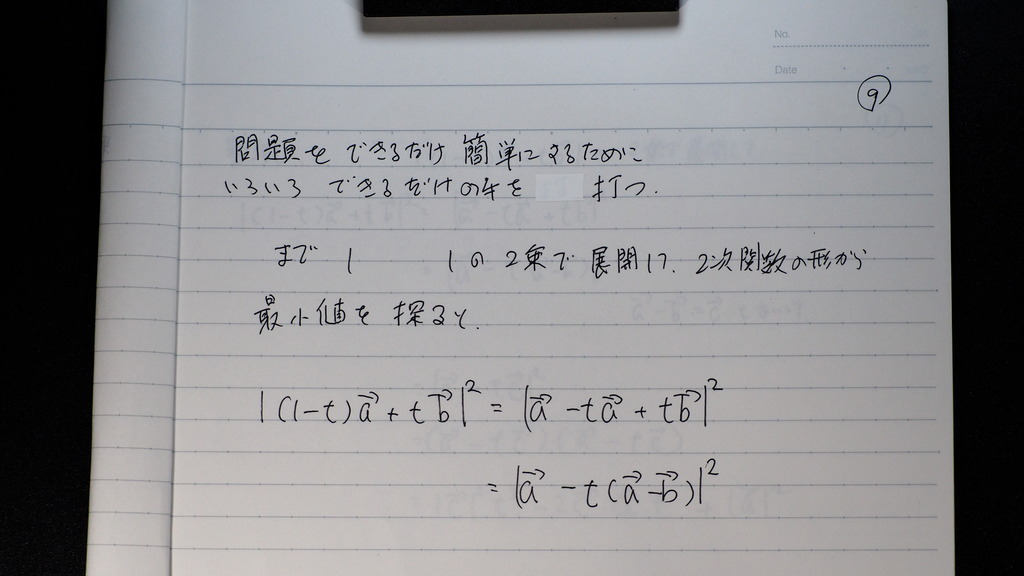 No.
Date
⑨
問題を できるだけ 簡単にするために
いろいろ できるだけの手を 打つ.
まで | | の 2乗で 展開して、2次関数の形から
最小値を 探ると.
|(1-t)a⃗ + t b⃗|² = |a⃗ - t a⃗ + t b⃗|²
= |a⃗ - t(a⃗ - b⃗)|²